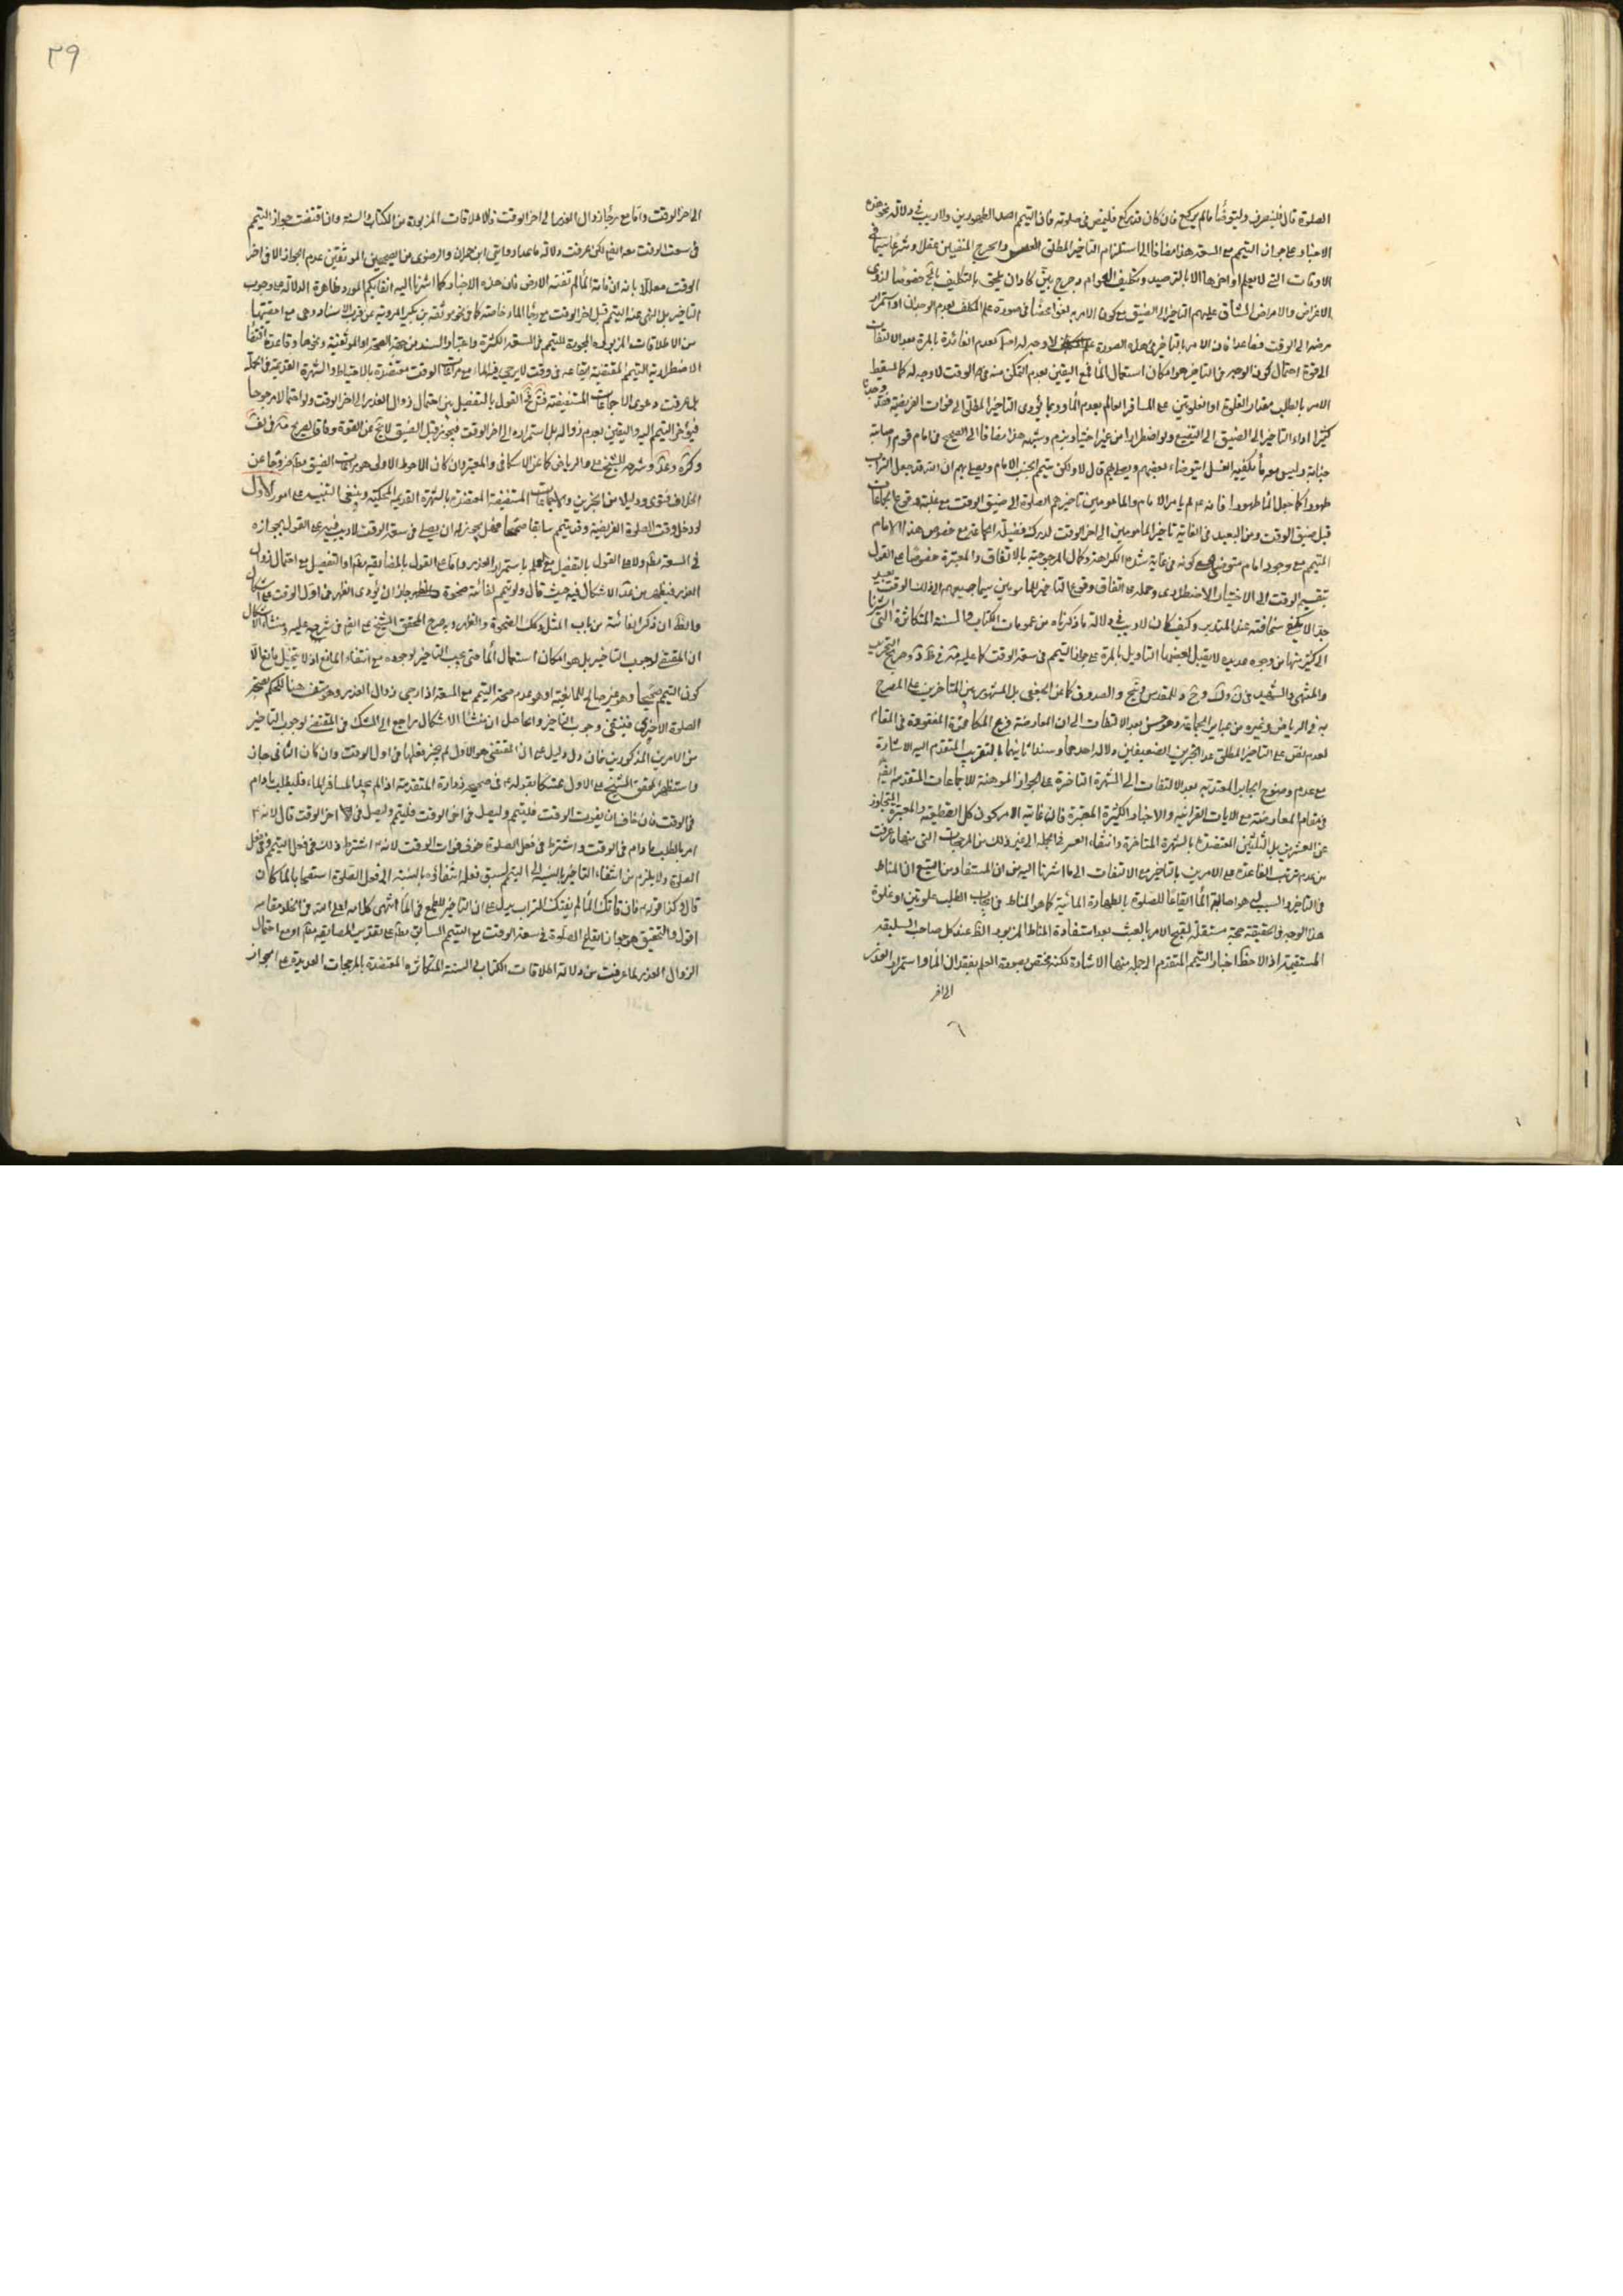 الصلوة قال فلينصرف وليتوضأ ما لم يركع فان كان قد ركع فليمض في صلوته فان التيمم احد الطهورين ولا ريب في دلالة نحو هذه
الاخبار على جواز التيمم مع السعة هذا مضافا الى استلزام التاخير المطلق العسر والحرج المنفيين عقلا وشرعا سيما في
الاوقات التي لا يعلم اواخرها الا بالترصيد وتكليف العوام به حرج بيّن كاد ان يلحق بالتكليف خصوصا لذوي
الاعراض والامراض الشاق عليهم التاخير الى الضيق مع كون الامر به لغوا محضا في صورة علم المكلف بعدم الوجدان او استمرار
مرضه الى الوقت فصاعدا فان الامر بالتاخير في هذه الصورة لا وجه له لعدم الفائدة بالمرة بعد الالتفات
الى قوة احتمال كون الوجه في التاخير هو امكان استعمال الماء فمع اليقين بعدم التمكن منه في الوقت لا وجه له كما يسقط
الامر بالطلب مقدار الغلوة او الغلوتين على المسافر العالم بعدم الماء وربما يؤدي التاخير المطلق الى فوات الفريضة
كثيرا اداء التاخير الى الضيق الى ولو اضطرارا من غير اختيار هذا مضافا الى الصحيح في امام قوم اصابته
جنابة وليس معه ما يكفيه للغسل ايتوضاء بعضهم ويصلي بهم قال لا ولكن يتيمم الجنب الامام ويصلي بهم ان الله قد جعل التراب
طهورا كما جعل الماء طهورا فانه لم يامر الامام والمامومين تاخيرهم الصلوة الى ضيق الوقت مع غلبة وقوع الجماعات
قبل ضيق الوقت ومن البعيد في الغاية تاخير المامومين الى اخر الوقت لدرك فضيلة الجماعة مع خصوص هذا الامام
المتيمم مع وجود امام متوضي مع كونه في غاية شدة الكراهة وكمال المرجوحية بالاتفاق والمعتبرة خصوصا على القول
بتقسيم الوقت الى الاختياري والاضطراري وحمله على اتفاق وقوع التاخير للمامومين سيما جميعهم الى ذلك الوقت بعيد
جدا لا يخفى سخافته عند المتدبر وكيف كان لا ريب في دلالة ما ذكرناه من عمومات الكتاب والسنة المتكاثرة التي اشرنا
الى كثير منها من وجوه عديدة لا يقبل بعضها التاويل بالمرة على جواز التيمم في سعة الوقت كما عليه
والمنتهى والشهيد والمقدس والصدوق كما عن الجعفي بل المشهور بين المتاخرين على المصرح
به في الرياض وغيره من عباير الجماعة وهو حسن بعد الالتفات الى ان المعارضة فرع المكافئة المفقودة في المقام
لعدم نص على التاخير المطلق عدا الخبرين الضعيفين دلالة احدهما وسندا ثانيهما بالتقريب المتقدم اليه الاشارة
مع عدم وضوح الجابر المعتد به بعد الالتفات الى الشهرة المتاخرة على الجواز الموهنة للاجماعات المتقدمة
في مقام المعارضة مع الايات القرانية والاخبار الكثيرة المعتبرة فان غاية الامر كون كل القطعية والمعتبرة المتجاوز
عن العشرين بل الثلثين المعتضدة بالشهرة المتاخرة وانتفاء العسر في الجملة الى غير ذلك من المرجحات التي منها ما عرفت
من عدم ترتب الفائدة على الامر بالتاخير مع الالتفات الى ما اشرنا اليه من ان المستفاد من التتبع ان المناط
في التاخير والسبب له هو اصابة الماء ايقاعا للصلوة بالطهارة المائية كما هو المناط في ايجاب الطلب غلوتين او غلوة
هذا الوجه في الحقيقة حجة مستقلة لقبح الامر بالعبث بعد استفادة المناط المزبور الظ عند كل صاحب السليقة
المستقيمة اذا لاحظ اخبار التيمم المتقدم الى جملة منها الاشارة لكنه يختص بصورة العلم بفقدان الماء واستمرار العذر
الى اخر
٢٩
الى اخر الوقت واما مع رجاء زوال العذر الى اخر الوقت فالاطلاقات المزبورة من الكتاب والسنة وان اقتضت جواز التيمم
في سعة الوقت معه ايضا لكن عرفت دلالة ما عدا روايتي ابن حمران والرضوي من الصحيحين الموثقين عدم الجواز الا في اخر
الوقت معللا بانه ان فاته الماء لم تفته الارض فان هذه الاخبار كما اشرنا اليه انفا بحكم المورد ظاهرة الدلالة على وجوب
التاخير بل النهي عنه التيمم قبل اخر الوقت مع رجاء الماء خاصة كما في نحو موثقة بن بكير المروية عن قرب الاسناد وهي مع اخصيتها
من الاطلاقات المزبورة المجوزة للتيمم في السعة الكثيرة واعتبار السند من جهة الصحة او الموثقية ونحوها وقاعدة اقتضاء
الاضطرارية التيمم المقتضية ايقاعه في وقت لا يرجى فيه الماء مع مراعات الوقت معتضدة بالاحتياط والشهرة القديمة في الجملة
بل عرفت دعوى الاجماعات المستفيضة القول بالتفصيل بين احتمال زوال العذر الى اخر الوقت ولو احتمالا مرجوحا
فيؤخر التيمم اليه واليقين بعدم زواله بل استمراره الى اخر الوقت فيجوز قبل الضيق لا يخ عن القوة وفاقا لصريح
وكره وعد وشرحه للشيخ علي والرياض كما عن الاسكافي والمعتبر وان كان الاحوط الاولى هو مراعات الضيق مط خروجا عن
الخلاف فتوى ودليلا من الخبرين والاجماعات المستفيضة المعتضدة بالشهرة القديمة المحكية وينبغي التنبيه على امور الاول
لو دخل وقت الصلوة الفريضة وقد تيمم سابقا صحيحا فهل يجوز له ان يصلي في سعة الوقت لا ريب فيه على القول بجوازه
في السعة مط ولا على القول بالتفصيل مع العلم باستمرار العذر واما على القول بالمضايقة مط او التفصيل مع احتمال زوال
العذر فيظهر من عد الاشكال فيه حيث قال ولو تيمم لفائتة ضحوة جاز ان يؤدي الظهر في اول الوقت على اشكال
والظ ان ذكر الفائتة من باب المثل وكذلك الضحوة والظهر وبه صرح المحقق الشيخ علي ايضا في شرحه عليه ومنشاء الاشكال
ان المقتضي لوجوب التاخير بل هو امكان استعمال الماء حتى يجب التاخير لوجوده مع انتفاء المانع اذ لا يتخيل مانع الا
كون التيمم صحيحا وهو غير صالح للمانعية او هو عدم صحة التيمم مع السعة اذا رجى زوال العذر وهو منتف هنا للحكم بصحته
الصلوة الاخرى فينتفي وجوب التاخير والحاصل ان منشأ الاشكال راجع الى الشك في المقتضي لوجوب التاخير
من الامرين المذكورين فان دل دليل على ان المقتضي هو الاول لم يجز فعلها في اول الوقت وان كان الثاني جاز
واستظهر المحقق الشيخ علي الاول متمسكا بقوله في صحيحة زرارة المتقدمة اذا لم يجد المسافر الماء فليطلب ما دام
في الوقت فان خاف ان يفوت الوقت فليتيمم وليصل في اخر الوقت قال لانه
امر بالطلب ما دام في الوقت واشترط في فعل الصلوة خوف فوات الوقت لانه اشترط ذلك في فعل التيمم وفي فعل
الصلوة ولا يلزم من انتفاء التاخير بالنسبة الى التيمم لسبق فعله انتفاؤه بالنسبة الى فعل الصلوة استصحابا لما كان
قال وكذا قوله فان فاتك الماء لم يفتك التراب يدل على ان التاخير للطمع في الماء انتهى كلامه اعلى الله في الخلد مقامه
اقول والتحقيق هو جواز ايقاع الصلوة في سعة الوقت مع التيمم السابق مط على تقديري المضايقة مط او مع احتمال
الزوال العذر لما عرفت من دلالة اطلاقات الكتاب والسنة المتكاثرة المعتضدة بالمرجحات العديدة على الجواز